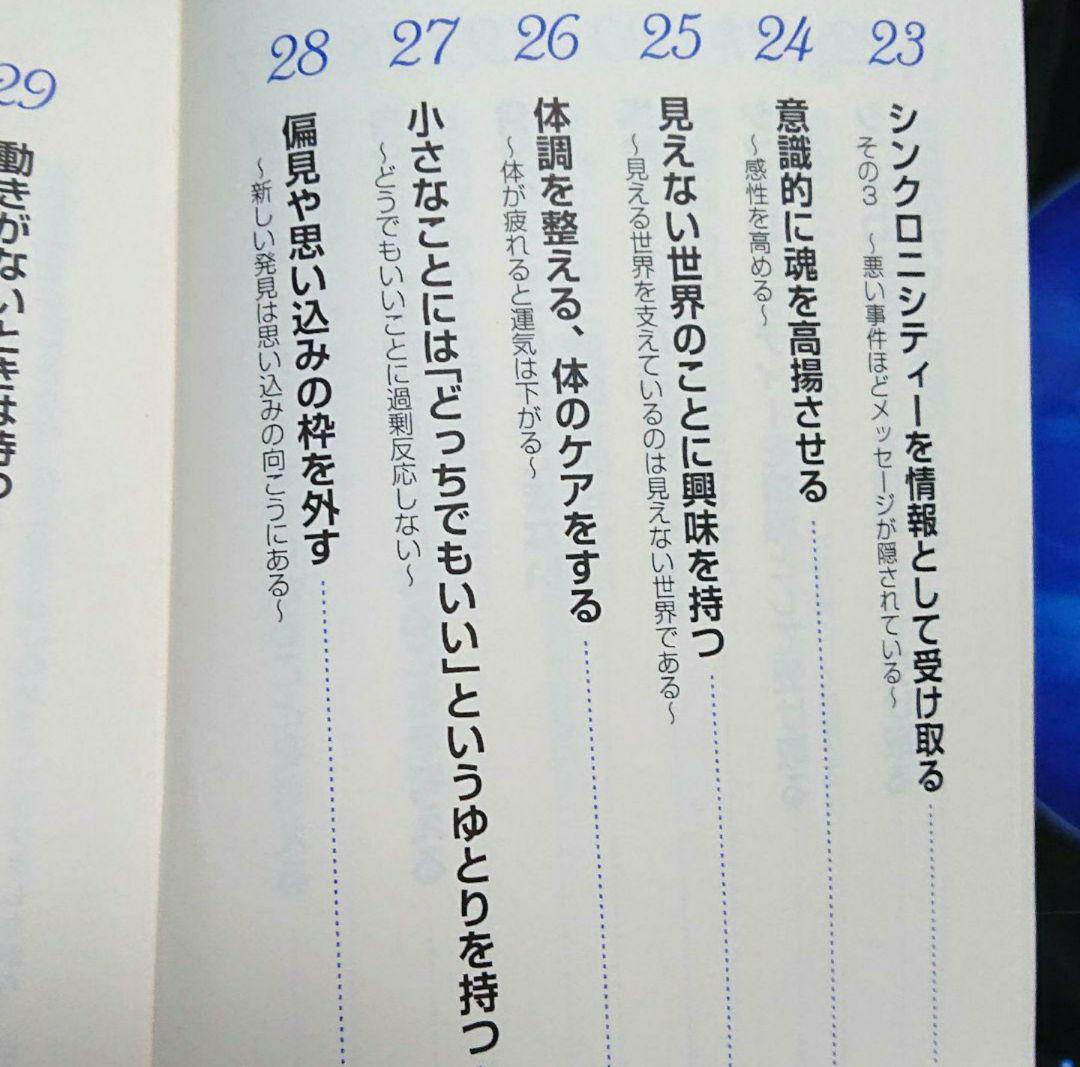 23
シンクロニシティーを情報として受け取る
その3　～悪い事件ほどメッセージが隠されている～
24
意識的に魂を高揚させる
～感性を高める～
25
見えない世界のことに興味を持つ
～見える世界を支えているのは見えない世界である～
26
体調を整える、体のケアをする
～体が疲れると運気は下がる～
27
小さなことには「どっちでもいい」というゆとりを持つ
～どうでもいいことに過剰反応しない～
28
偏見や思い込みの枠を外す
～新しい発見は思い込みの向こうにある～
29
動きがないときは待つ